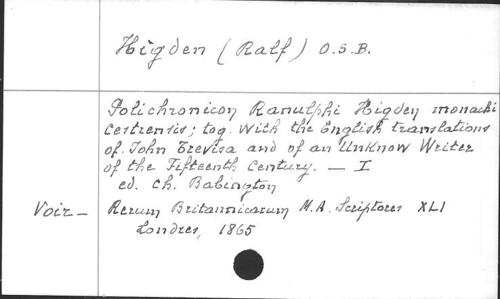 Higden (Ralf) O.S.B.
Polichronicon Ranulphi Higden monachi
Cestrensis; tog. with the English translations
of John Trevisa and of an Unknow Writer
of the Fifteenth Century. — I
ed. Ch. Babington
Voir — Rerum Britannicarum M.A. Scriptores XLI
Londres, 1865